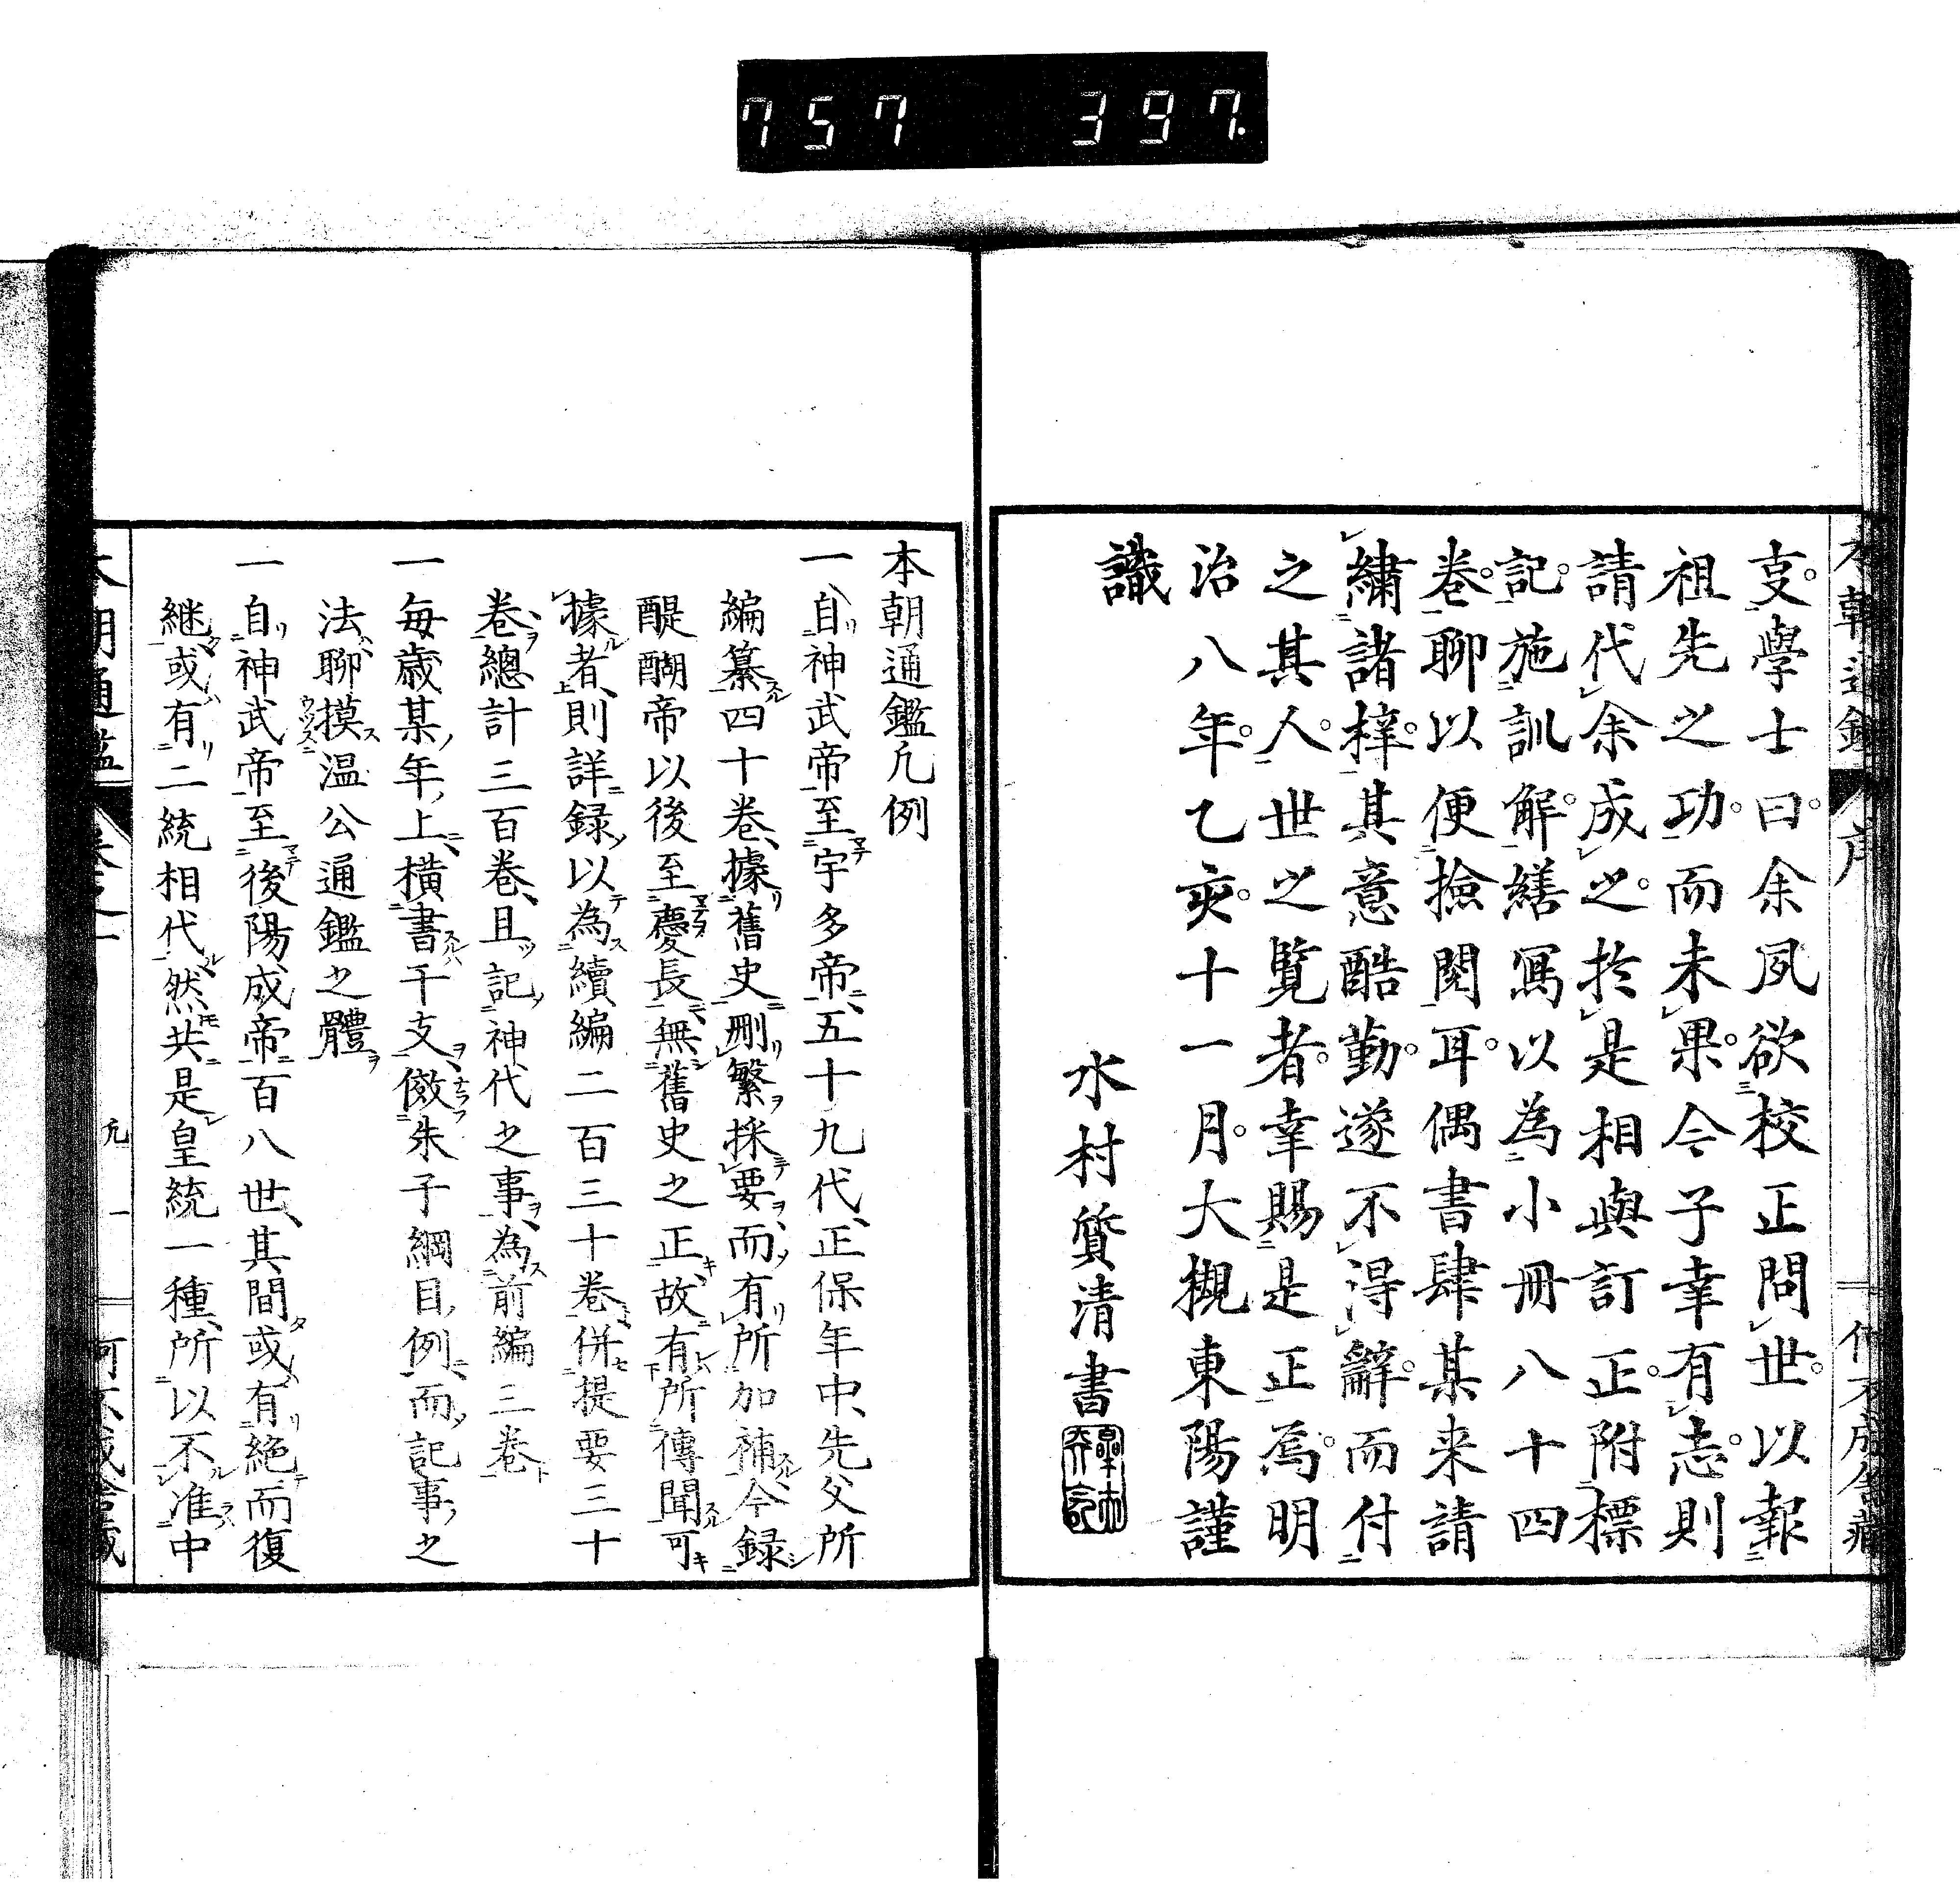 757 397.
支學士曰余夙欲校正問世以報
祖先之功而未果今子幸有志則
請代余成之於是相與訂正附標
記施訓解繕寫以為小冊八十四
巻聊以便撿閲耳偶書肆某来請
繍諸梓其意酷勤遂不得辭而付
之其人世之覧者幸賜是正焉明
治八年乙亥十一月大槻東陽謹
識
水村質清書
本朝通鑑凢例
一自神武帝至宇多帝五十九代正保年中先父所
編纂四十巻據舊史刪繁採要而有所加補今録
醍醐帝以後至慶長無舊史之正故有所傳聞可
據者則詳録以為續編二百三十巻併提要三十
巻總計三百巻且記神代之事為前編三巻
一毎歳某年上横書干支傚朱子綱目例而記事之
法聊摸温公通鑑之體
一自神武帝至後陽成帝百八世其間或有絶而復
継或有二統相代然共是皇統一種所以不准中
本朝通鑑 巻之一 凢 一